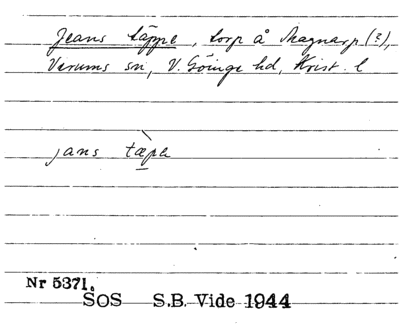 Jeans täppe, torp å Magnarp (?),
Verums sn, V. Göinge hd, Krist. l
jans tæpe
Nr 5371.
SOS S.B. Vide 1944